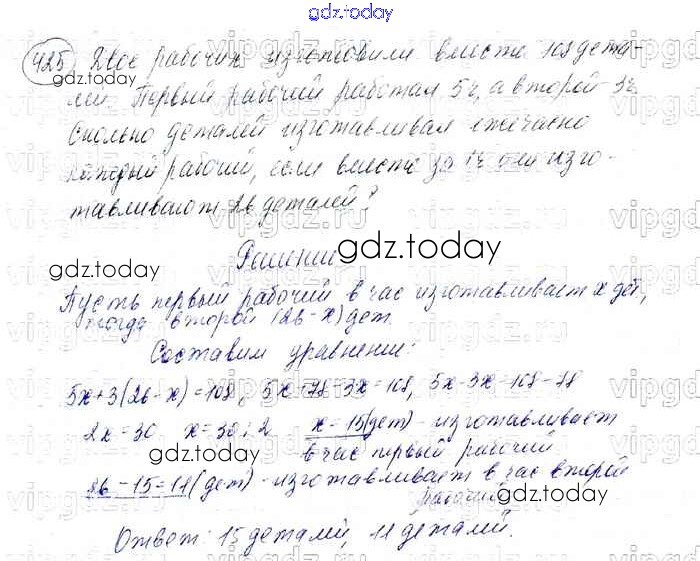 gdz.today
425 Двое рабочих изготовили вместе 108 дета-
лей. Первый рабочий работал 5ч, а второй 3ч.
Сколько деталей изготавливал ежечасно
каждый рабочий, если вместе за 1ч они изго-
тавливают 26 деталей?
Решение
Пусть первый рабочий в час изготавливает x дет,
тогда второй (26-x) дет.
Составим уравнение:
5x+3(26-x)=108, 5x+78-3x=108, 5x-3x=108-78
2x=30 x=30:2 x=15(дет) - изготавливает
в час первый рабочий
26-15=11(дет) - изготавливает в час второй
рабочий
Ответ: 15 деталей, 11 деталей.